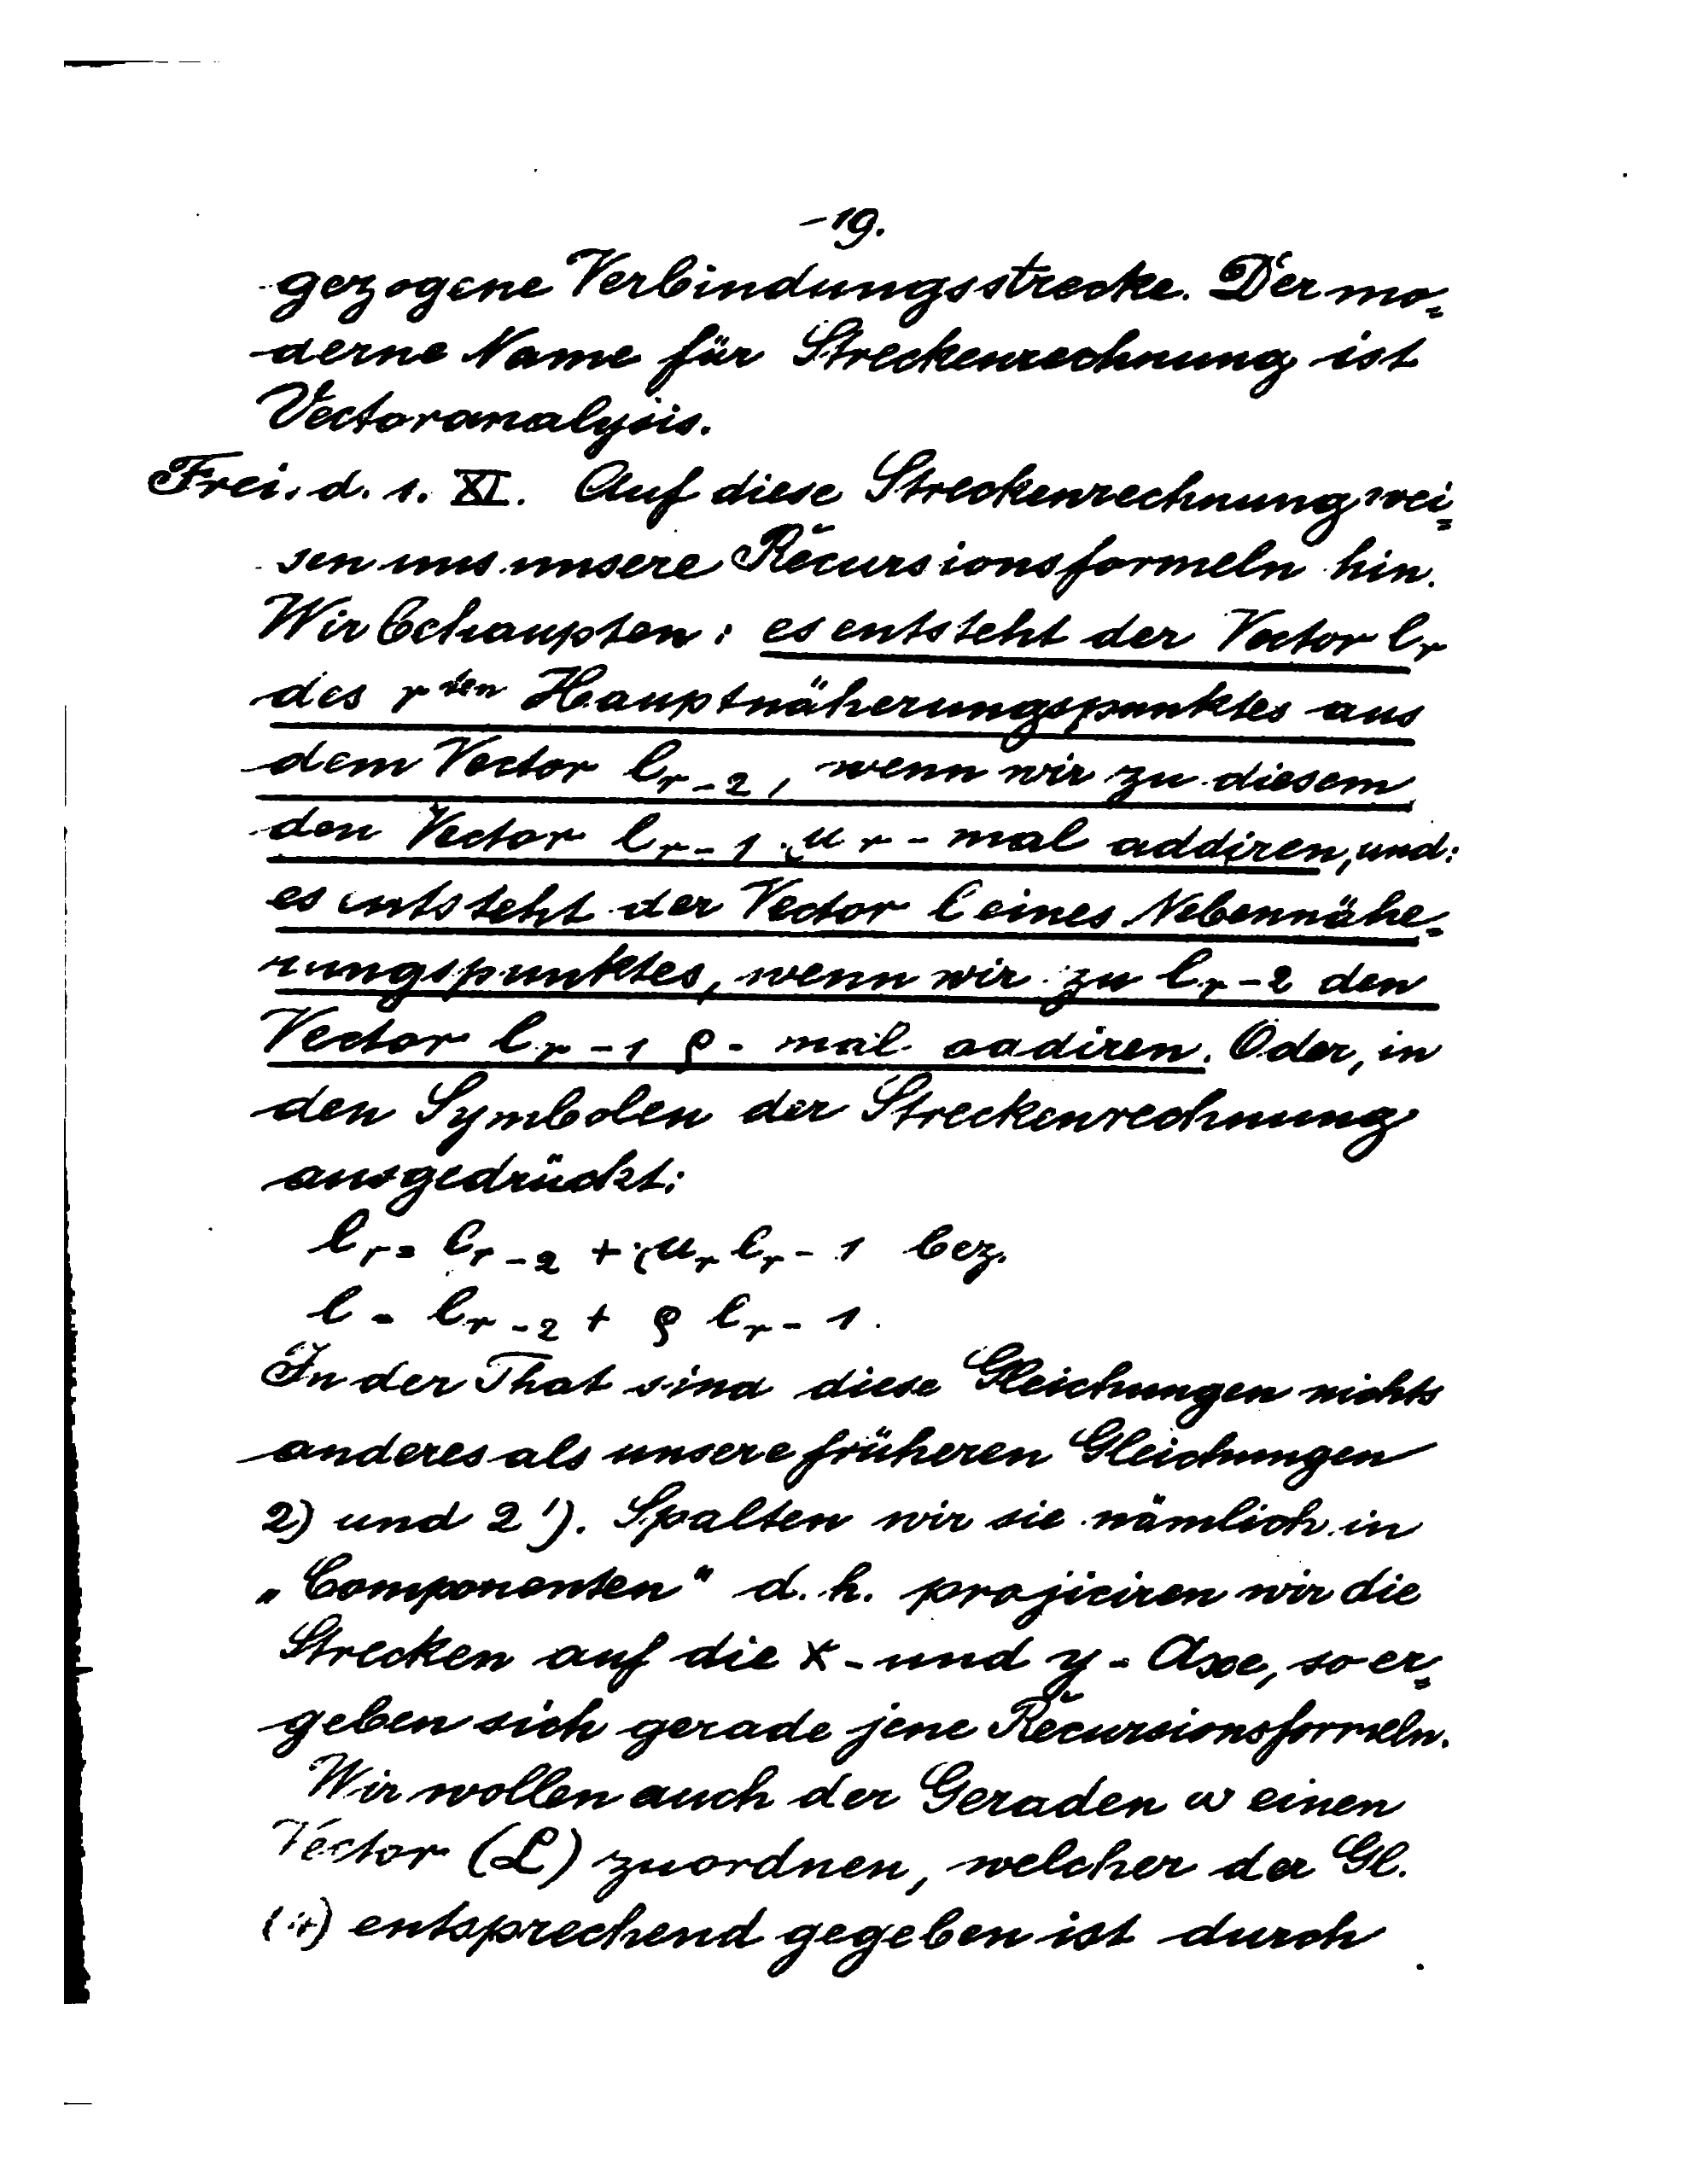 -19.
gezogene Verbindungsstrecke. Der mo=
derne Name für Streckenrechnung ist
Vectoranalysis.
Frei. d. 1. XI. Auf diese Streckenrechnung wei=
sen uns unsere Recursionsformeln hin.
Wir behaupten: es entsteht der Vector lᵣ
des rten Hauptnäherungspunktes aus
dem Vector lᵣ₋₂, wenn wir zu diesem
den Vector lᵣ₋₁ μᵣ-mal addiren, und:
es entsteht der Vector l eines Nebennähe=
rungspunktes, wenn wir zu lᵣ₋₂ den
Vector lᵣ₋₁ ρ-mal addiren. Oder, in
den Symbolen der Streckenrechnung
ausgedrückt:
lᵣ = lᵣ₋₂ + μᵣ lᵣ₋₁ bez.
l = lᵣ₋₂ + ρ lᵣ₋₁.
In der That sind diese Gleichungen nichts
anderes als unsere früheren Gleichungen
2) und 2'). Spalten wir sie nämlich in
„Componenten" d. h. projiciren wir die
Strecken auf die x- und y-Axe, so er=
geben sich gerade jene Recursionsformeln.
Wir wollen auch der Geraden ω einen
Vector (L) zuordnen, welcher der Gl.
(4) entsprechend gegeben ist durch